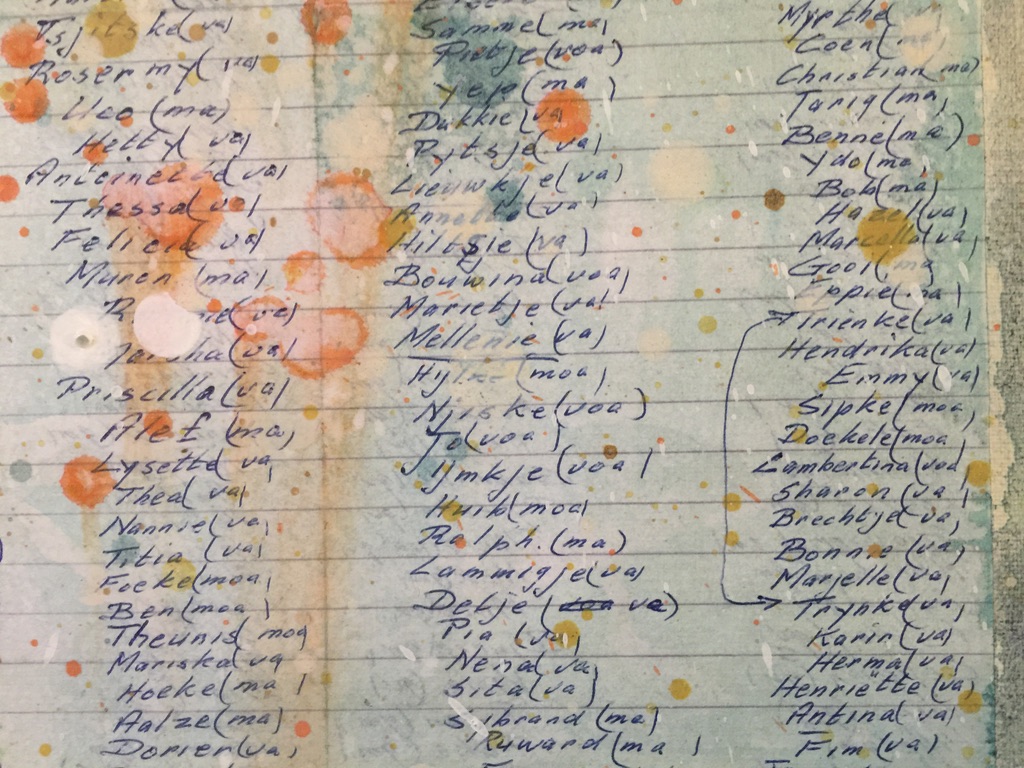 Tsjitske (va)
Rosermy (va)
Uco (ma)
Hetty va)
Antoinette va)
Thessa (va)
Felicia va)
Muren (ma)
(va)
(va)
Priscilla (va)
Alef (ma)
Lysette va)
Thea (va)
Nannie (va)
Titia (va)
Foeke (moa)
Ben (moa)
Theunis (moa
Mariska va
Hoeke (ma)
Aalze (ma)
Dorier (va)
Sammel (ma)
Pietje (voa)
Yep (ma)
Dukkie (va)
Rytsje (va)
Lieuwkje (va)
Annette (va)
Hiltsje (va)
Bouwina (voa)
Marietje (va)
Mellenie (va)
(moa)
Njiske (voa)
Jo (voa)
IJmkje (voa)
Huib (moa)
Ralph. (ma)
Lammigje (va)
Detje (voa va)
Pia (va)
Nena (va
Sita (va)
Sibrand (ma)
Ruward (ma)
Myrthe
Coen (ma)
Christian ma)
Tariq (ma)
Benne (ma)
Ydo (ma
Bob (ma)
Hazel (va)
Marcella (va)
Gooi (ma
Eppie (ma)
Trienke (va)
Hendrika (va)
Emmy (va)
Sipke (moa)
Doekele (moa
Lambertina (voa)
Sharon (va)
Brechtje (va)
Bonnie (va)
Marjelle (va)
Trynke (va)
Karin (va)
Herma (va)
Henriëtte (va)
Antina (va)
Fim (va)